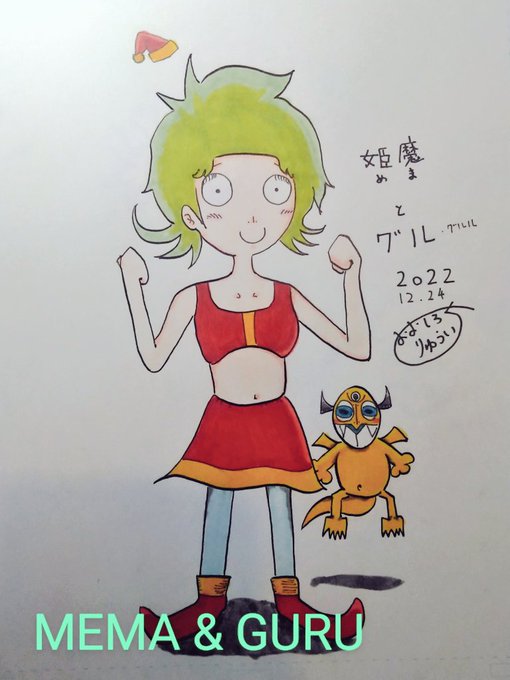 姫魔
めま
と
グル・グルル
2022
12.24
おおしろ
りゅうい
MEMA & GURU